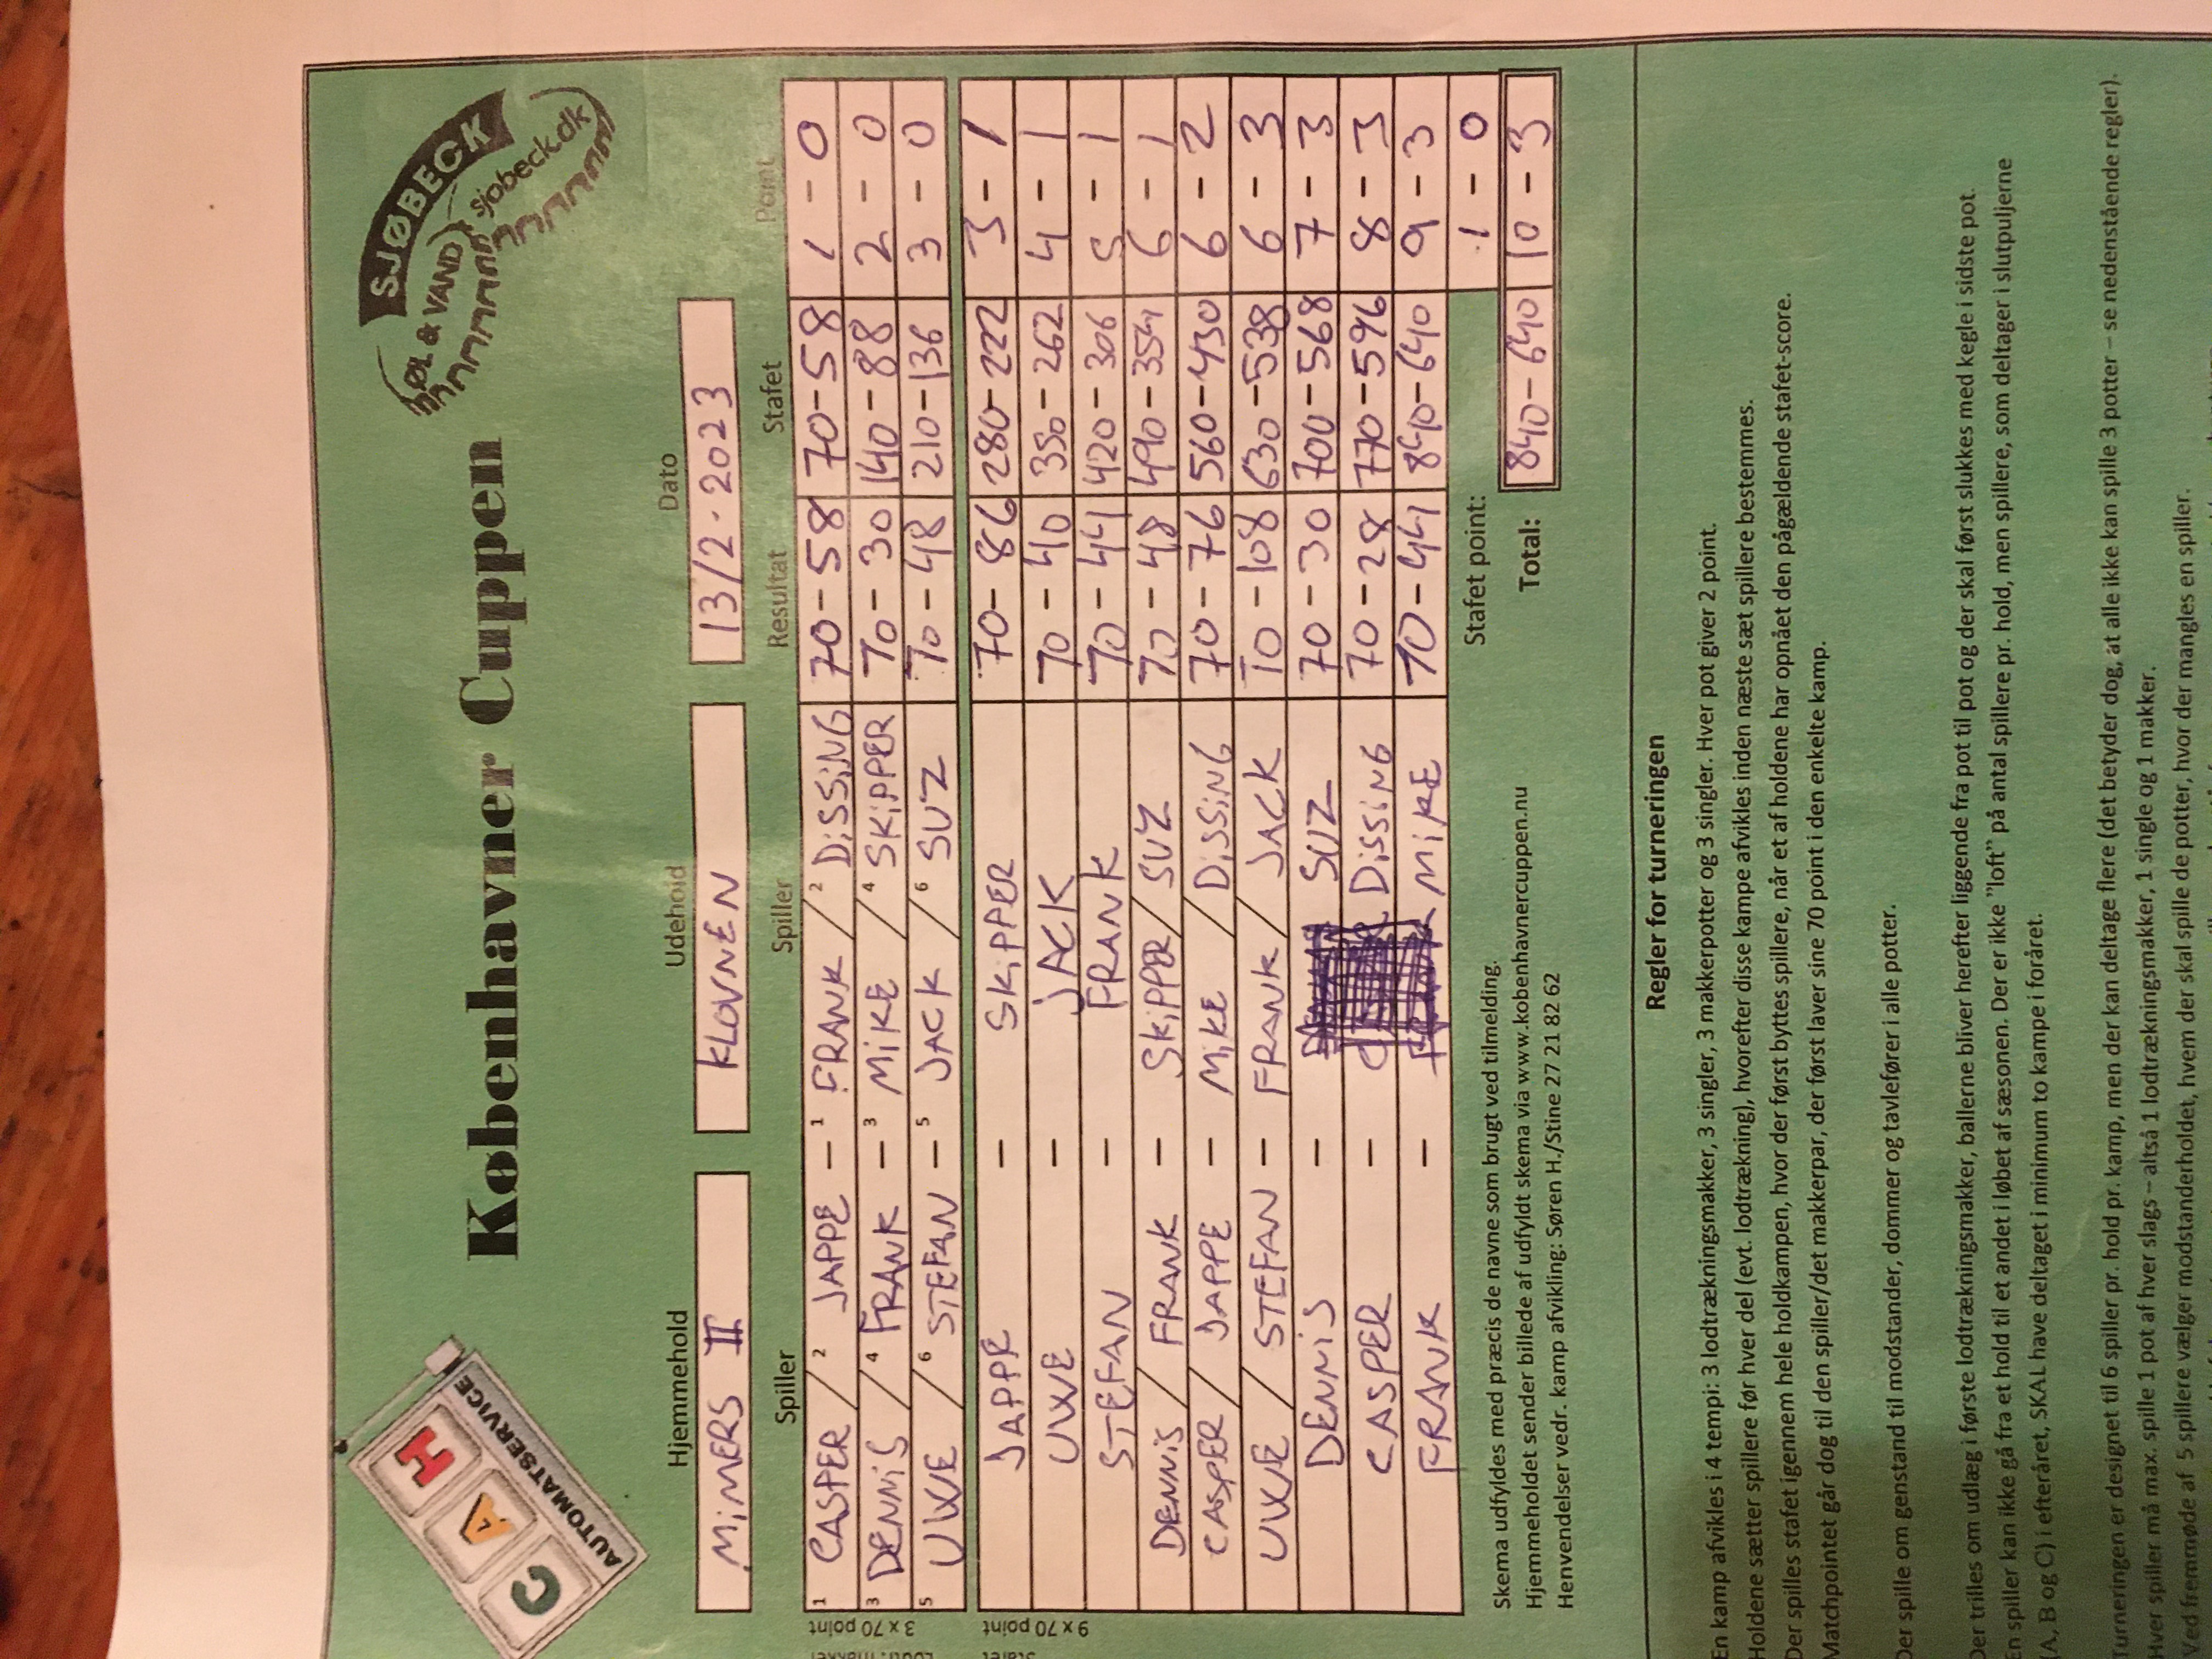 CAH
AUTOMATSERVICE
Københavner Cuppen
SJØBECK
ØL & VAND
sjobeck.dk
Hjemmehold Udehold Dato
MINERS II KLOVNEN 13/2-2023
Spiller Spiller Resultat Stafet Point
3 x 70 point
1 CASPER / 2 JAPPE - 1 FRANK / 2 DISSING 70-58 70-58 1 - 0
3 DENNIS / 4 FRANK - 3 MIKE / 4 SKIPPER 70-30 140-88 2 - 0
5 UWE / 6 STEFAN - 5 JACK / 6 SUZ 70-48 210-136 3 - 0
9 x 70 point
JAPPE - SKIPPER 70-86 280-222 3 - 1
UWE - JACK 70-40 350-262 4 - 1
STEFAN - FRANK 70-44 420-306 5 - 1
DENNIS / FRANK - SKIPPER / SUZ 70-48 490-354 6 - 1
CASPER / JAPPE - MIKE / DISSING 70-76 560-430 6 - 2
UWE / STEFAN - FRANK / JACK 70-108 630-538 6 - 3
DENNIS - SUZ 70-30 700-568 7 - 3
CASPER - DISSING 70-28 770-596 8 - 3
FRANK - MIKE 70-44 840-640 9 - 3
Stafet point: 1 - 0
Total: 840-640 10 - 3
Skema udfyldes med præcis de navne som brugt ved tilmelding.
Hjemmeholdet sender billede af udfyldt skema via www.kobenhavnercuppen.nu
Henvendelser vedr. kamp afvikling: Søren H./Stine 27 21 82 62
Regler for turneringen
En kamp afvikles i 4 tempi: 3 lodtrækningsmakker, 3 singler, 3 makkerpotter og 3 singler. Hver pot giver 2 point.
Holdene sætter spillere før hver del (evt. lodtrækning), hvorefter disse kampe afvikles inden næste sæt spillere bestemmes.
Der spilles stafet igennem hele holdkampen, hvor der først byttes spillere, når et af holdene har opnået den pågældende stafet-score.
Matchpointet går dog til den spiller/det makkerpar, der først laver sine 70 point i den enkelte kamp.
Der spille om genstand til modstander, dommer og tavlefører i alle potter.
Der trilles om udlæg i første lodtrækningsmakker, ballerne bliver herefter liggende fra pot til pot og der skal først slukkes med kegle i sidste pot.
En spiller kan ikke gå fra et hold til et andet i løbet af sæsonen. Der er ikke "loft" på antal spillere pr. hold, men spillere, som deltager i slutpuljerne
(A, B og C) i efteråret, SKAL have deltaget i minimum to kampe i foråret.
Turneringen er designet til 6 spiller pr. hold pr. kamp, men der kan deltage flere (det betyder dog, at alle ikke kan spille 3 potter – se nedenstående regler).
Hver spiller må max. spille 1 pot af hver slags – altså 1 lodtrækningsmakker, 1 single og 1 makker.
Ved fremmøde af 5 spillere vælger modstanderholdet, hvem der skal spille de potter, hvor der mangles en spiller.